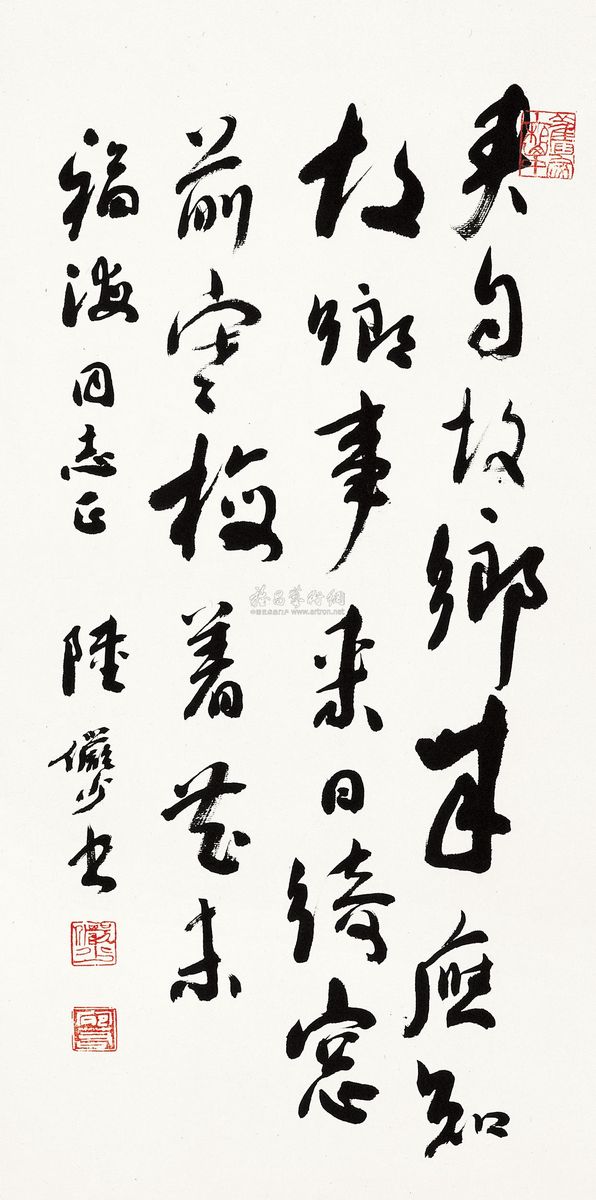 君自故鄉来應知
故鄉事来日綺窓
前寒梅着花未
福海同志正 陸儼少书
雅昌藝術網
www.artron.net